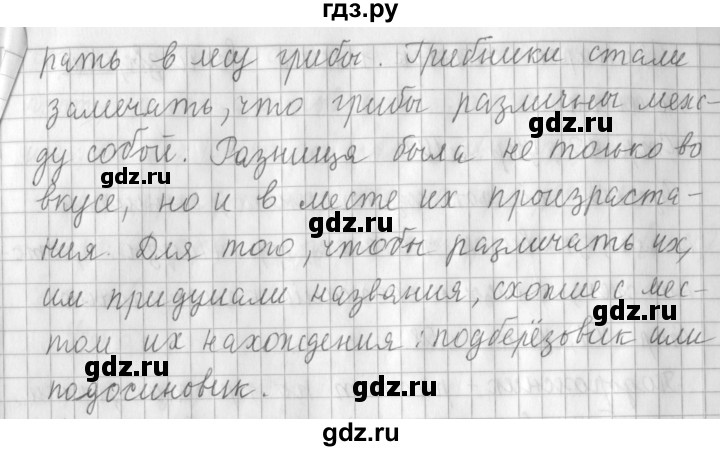 гдз.ру
рать в лесу грибы. Грибники стали
замечать, что грибы различны меж-
gdz.ru
ду собой. Разница была не только во
gdz.ru
вкусе, но и в месте их произраста-
gdz.ru
ния. Для того, чтобы различать их,
им придумали названия, схожие с мес-
gdz.ru
том их нахождения: подберёзовик или
gdz.ru
подосиновик.
gdz.ru
gdz.ru